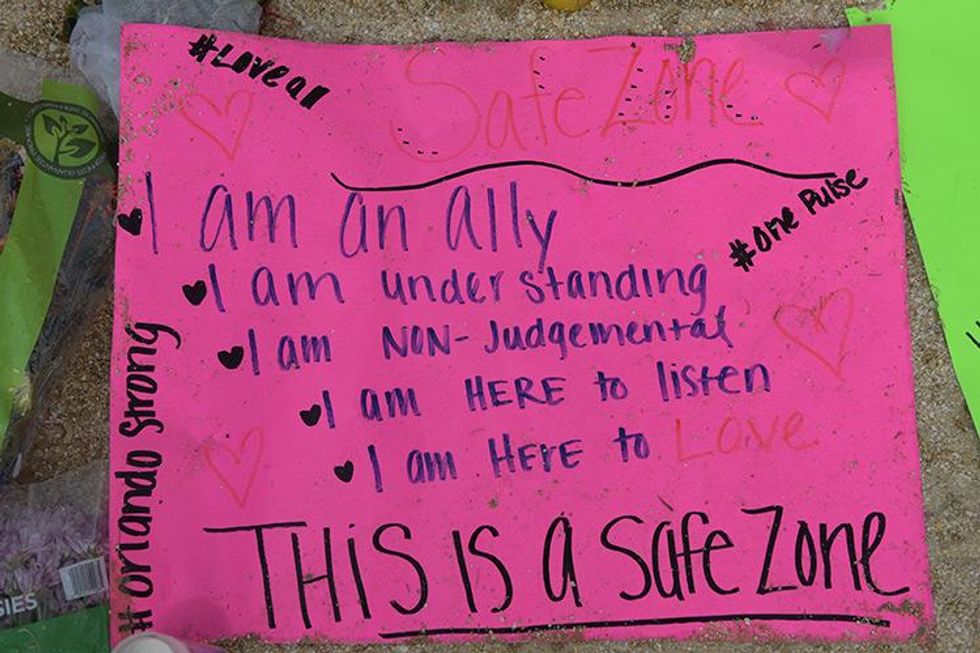 #Loveall
Safe Zone
I am an Ally
#One Pulse
I am understanding
I am NON-Judgemental
I am HERE to listen
I am HERE to Love
#Orlando Strong
THIS IS a Safe Zone
SIES